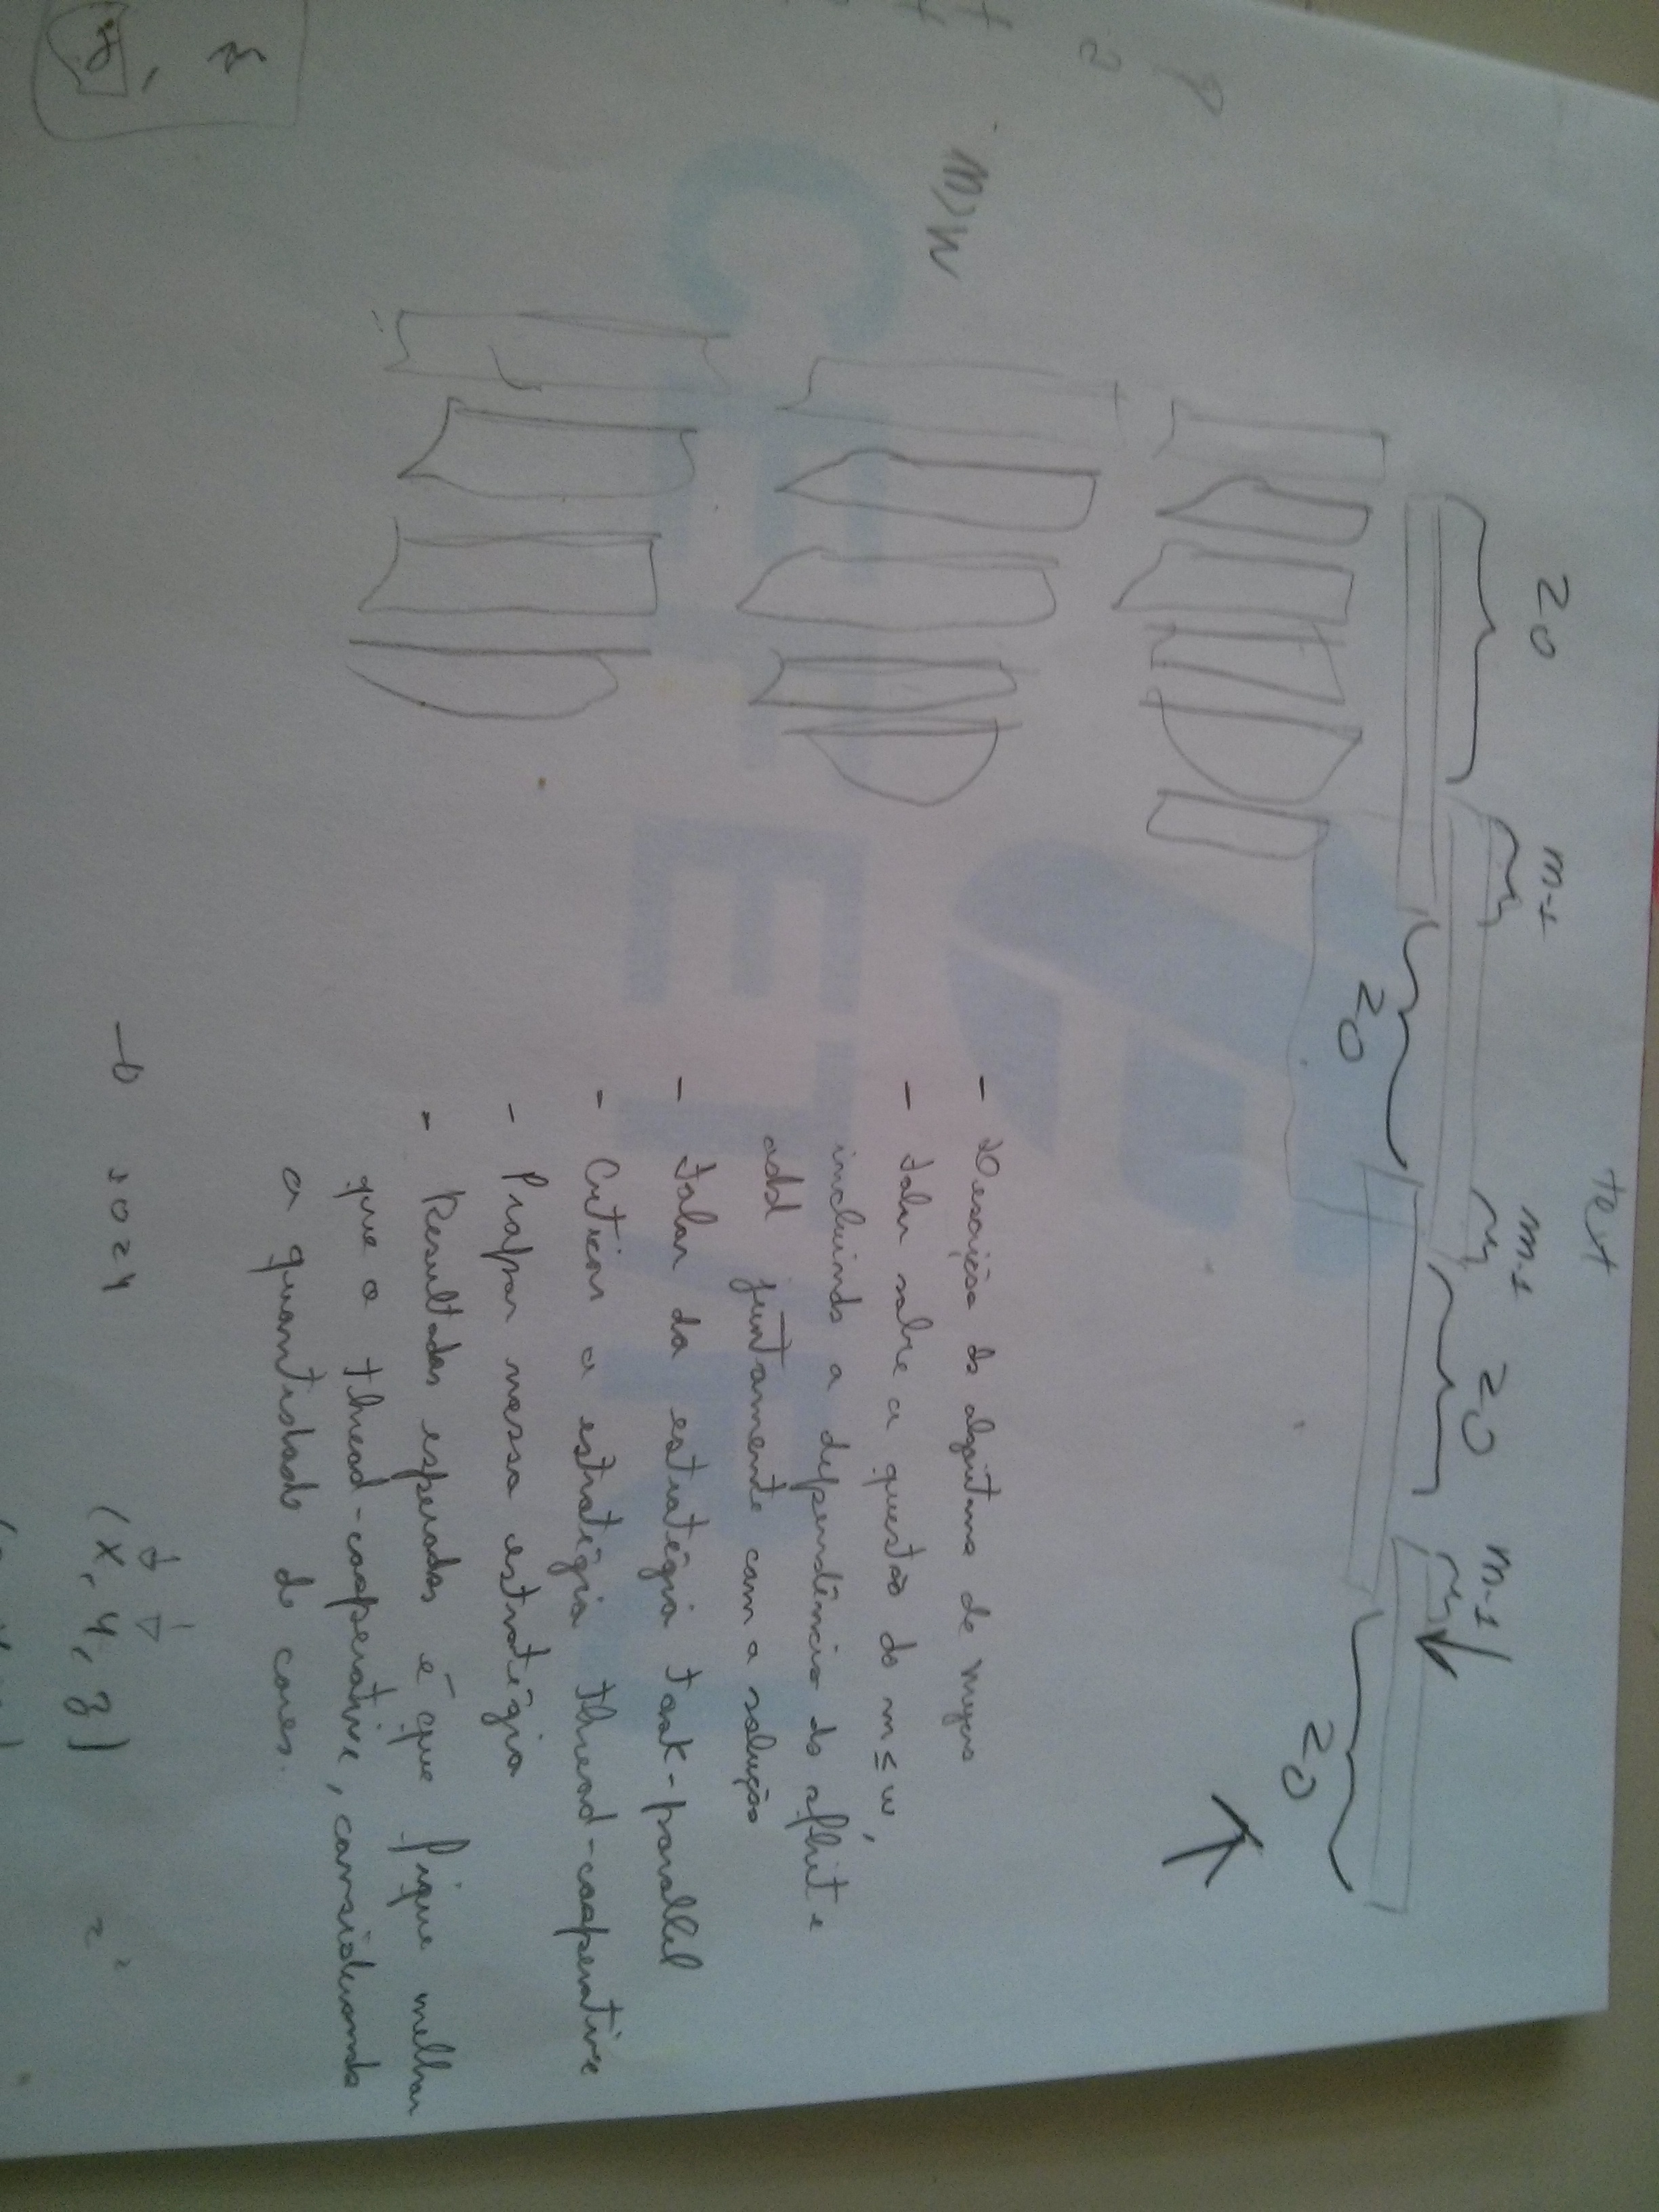 text
20
m-1
m-1
20
m-1
20
20
m>w
- Descrição do algoritmo de Myers
- Falar sobre a questão do m ≤ w,
incluindo a dependência do shift e
add juntamente com a solução
- Falar da estratégia task-parallel
- Criticar a estratégia thread-cooperative
- Propor nossa estratégia
- Resultados esperados é que fique melhor
que o thread-cooperative, considerando
a quantidade de cores.
1024
(x, y, z)
CEFET/RJ